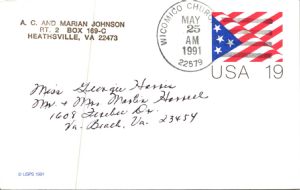 A. C. AND MARIAN JOHNSON
RT. 2 BOX 169-C
HEATHSVILLE, VA 22473
WICOMICO CHURCH
MAY
25
AM
1991
22579
USA 19
Miss Georgie
Mr. & Mrs. Martin
1608 Dr.
Va. Beach, Va. 23454
© USPS 1991